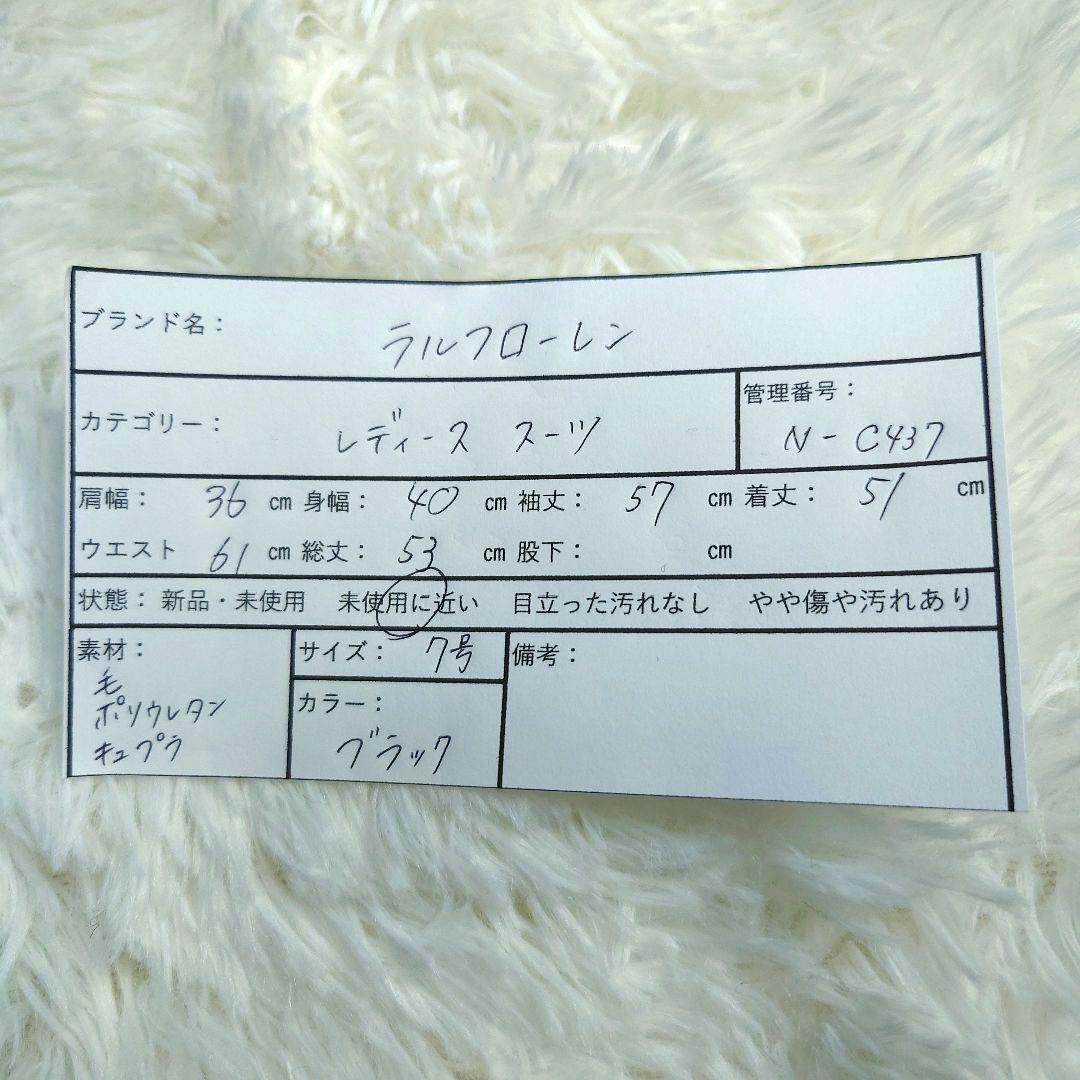 ブランド名： ラルフローレン
カテゴリー： レディース スーツ 管理番号： N-C437
肩幅： 36 ㎝ 身幅： 40 ㎝ 袖丈： 57 ㎝ 着丈： 51 ㎝
ウエスト 61 ㎝ 総丈： 53 ㎝ 股下： ㎝
状態： 新品・未使用 未使用に近い 目立った汚れなし やや傷や汚れあり
素材： サイズ： 7号 備考：
毛
ポリウレタン カラー：
キュプラ ブラック